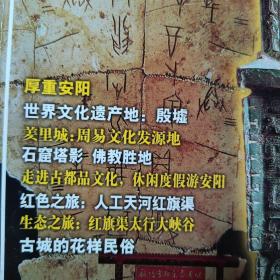 厚重安阳
世界文化遗产地：殷墟
羑里城：周易文化发源地
石窟塔影 佛教胜地
走进古都品文化，休闲度假游安阳
红色之旅：人工天河红旗渠
生态之旅：红旗渠太行大峡谷
古城的花样民俗